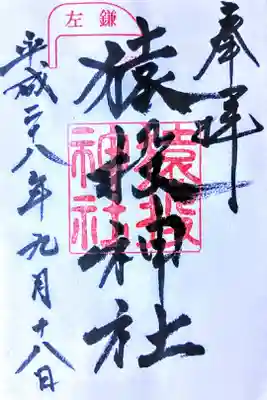 奉拝
左鎌
猿投神社
猿投神社
平成二十八年九月十八日